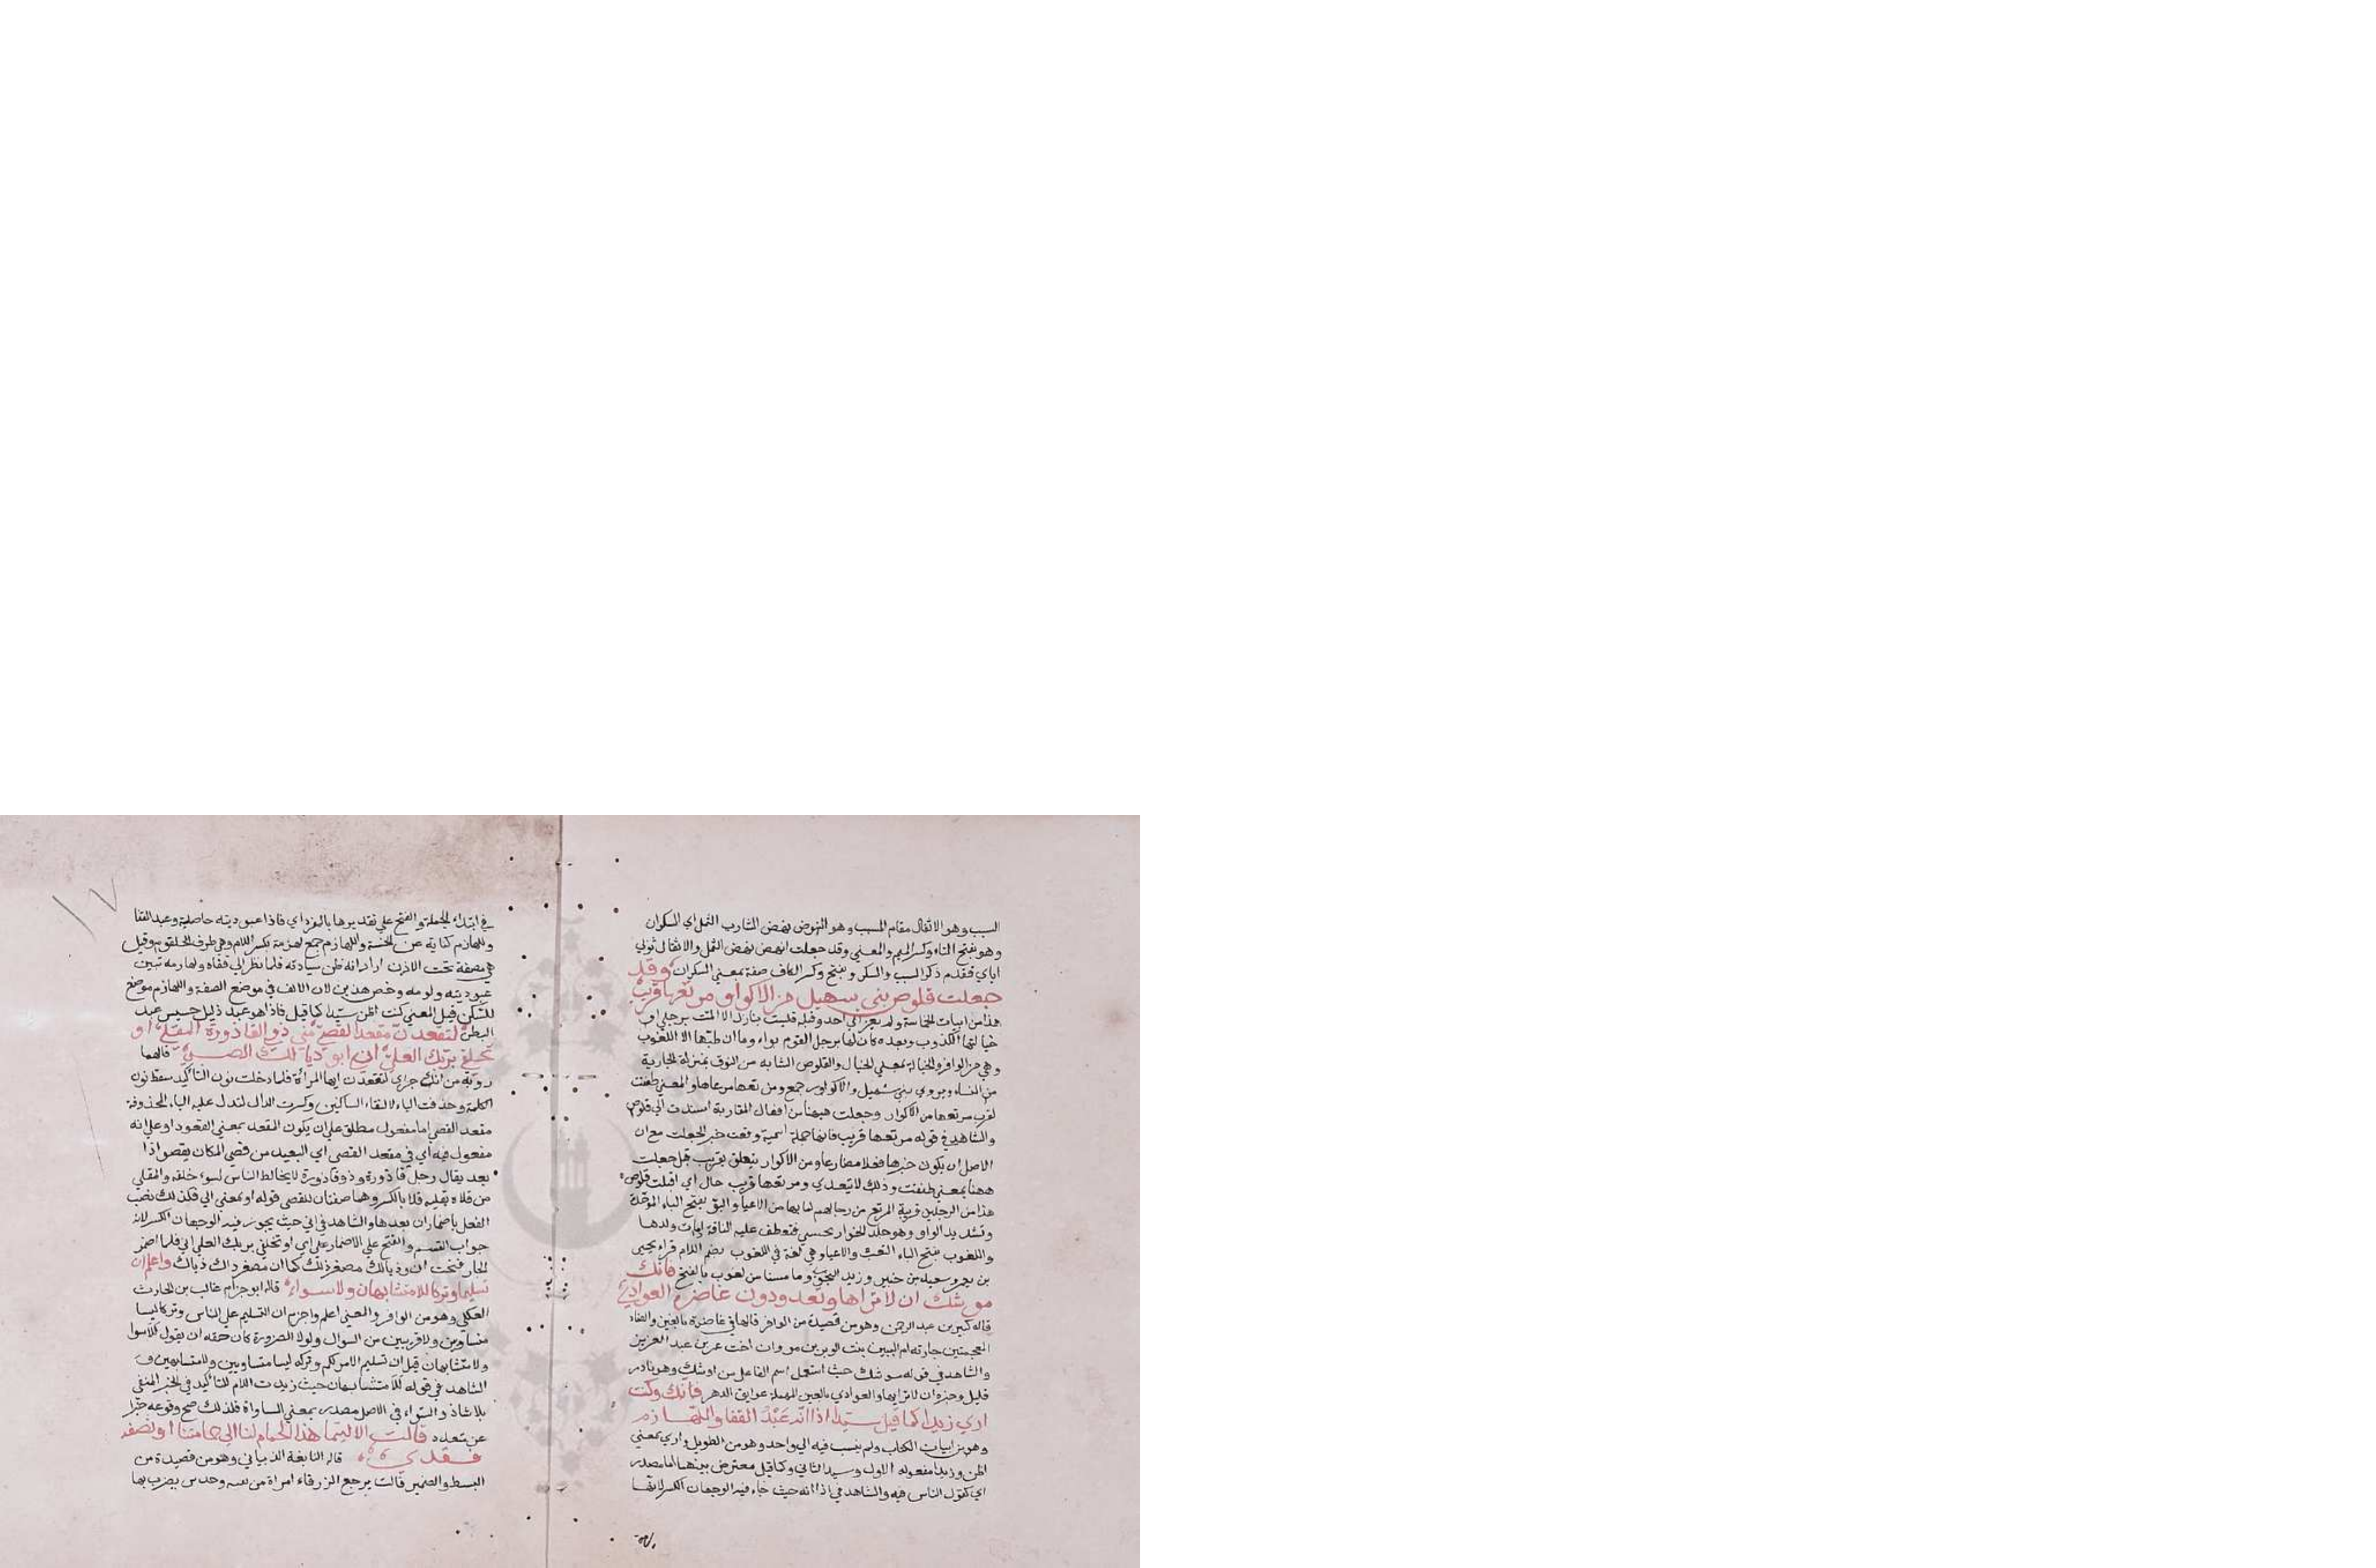 السبب وهو الاثقال مقام المسبب وهو النهوض ينهض الشارب الثمل اي السكران
وهو بفتح الثاء وكسر الميم والمعنى وقد جعلت انهض نهض الثمل والاثقال ثوبي
اياي فقدم ذكر السبب والسكر وبفتح وكسر الكاف صفة بمعنى السكران وقد
جعلت قلوص بني سهيل من الاكوار مرتعها قريب
هذا من ابيات الحماسة ولم يعز الى احد وقبله فليست بنازل الا المت برحلي او
خيالتها الكذوب وبعده كان لها برحل القوم بواء وما ان طبها الا اللغوب
وهي من الوافر والخيالة بمعنى الخيال والقلوص الشابه من النوق بمنزلة الجارية
من النساء ويروى بني سهيل والاكوار جمع ومن تعها مرعاها والمعنى طفقت
لقرب مرتعها من الاكوار وجعلت ههنا من افعال المقاربة اسندت الى قلوص
والشاهد في قوله مرتعها قريب فانها جملة اسمية وقعت خبر الجعلت مع ان
الاصل ان يكون خبرها فعلا مضارعا ومن الاكوار يتعلق بقريب جعلت
ههنا بمعنى طفقت وذلك لا يتعدى ومرتعها قريب حال اي اقبلت قلوص
هذا من الرجلين قريبة المرتع من رحالهم لما بها من الاعياء والبو بفتح الباء الموحدة
وتشديد الواو وهو جلد الحوار يحشى فتعطف عليه الناقة اذا مات ولدها
واللغوب بفتح الباء التعب والاعياء وهي لغة في اللغوب بضم اللام قراء يحيى
بن يعمر وسعيد بن جبير وزيد وما مسنا من لغوب بالفتح فانك
موشك ان لا تراها وتعدو دون غاضرة العوادي
قاله كثير بن عبد الرحمن وهو من قصيدة من الوافر قالها في غاضرة بالغين والضاد
المعجمتين جارية ام البنين بنت بن مروان اخت عمر بن عبد العزيز
والشاهد في قوله موشك حيث استعمل اسم الفاعل من اوشك وهو نادر
قليل وخبره ان لا تراها والعوادي بالعين المهملة عوايق الدهر فانك وكنت
ارى زيدا كما قيل سيدا اذا انه عبد القفا واللهازم
وهو من ابيات الكتاب ولم ينسب فيه الى واحد وهو من الطويل وارى بمعنى
اظن وزيدا مفعوله الاول وسيدا الثاني وكما قيل معترض بينهما لما مصدر
اي كقول الناس فيه والشاهد في اذا انه حيث جاء فيه الوجهان الكسر لانها
في ابتداء الجملة والفتح على تقديرها بالمفرد اي فاذا عبوديته حاصلة وعبد القفا
واللهازم كناية عن الخسة واللهازم جمع لهزمة بكسر اللام وهي طرف الحلقوم وقيل
هي مضغة تحت الاذن اراد انه ظن سيادته فلما نظر الى قفاه ولهازمه تبين
عبوديته ولومه وخص هذين لان القفا في موضع الصفة واللهازم موضع
اللكز قيل المعنى كنت اظن سيدا كما قيل فاذا هو عبد ذليل خسيس عبد
البطن لتقعدن مقعد القصي مني ذي القاذورة المقلي او
تحلفي بربك العلي اني ابو ذيالك الصبي قالهما
روبة من لتقعدن ايها المراة فلما دخلت نون التأكيد سقط نون
الكلمة وحذفت الياء لالتقاء الساكنين وكسرت الدال لتدل على الياء المحذوفة
مقعد القصي اما مفعول مطلق على ان يكون المقعد بمعنى القعود او على انه
مفعول فيه اي في مقعد القصي اي البعيد من قصي المكان يقصو اذا
بعد يقال رجل قاذورة وذو قاذورة لا يخالط الناس لسوء خلقه والمقلي
من قلاه يقليه قلا بالكسر وهما صفتان للقصي قوله او بمعنى الى فلذلك نصب
الفعل باضمار ان بعدها والشاهد في اني حيث يجوز فيه الوجهان الكسر لانه
جواب القسم والفتح على الاضمار على اي او تحلفي بربك العلي اني فلما اضمر
الجار فتحت ان وذيالك مصغر ذلك كما ان مصغر ذاك ذياك واعلم ان
تسليما وتركا للامتشابهان ولا سواء قاله ابو حزام غالب بن الحارث
العكلي وهو من الوافر والمعنى اعلم واجزم ان التسليم على الناس وتركا ليسا
متساويين ولا قريبين من السوال ولولا الضرورة كان حقه ان يقول للاسوا
ولا متشابهان قيل ان تسليم الامر لكم وتركه ليسا متساويين ولا متشابهين و
الشاهد في قوله للامتشابهان حيث زيدت اللام للتأكيد في الخبر المنفي
بلا شاذ والسواء في الاصل مصدر بمعنى المساواة فلذلك صح وقوعه خبرا
عن متعدد قالت الا ليتما هذا الحمام لنا الى حمامتنا او نصفه
فقد ي قاله النابغة الذبياني وهو من قصيدة من
البسيط والضمير قالت يرجع الزرقاء امراة من وحدس يضرب بها